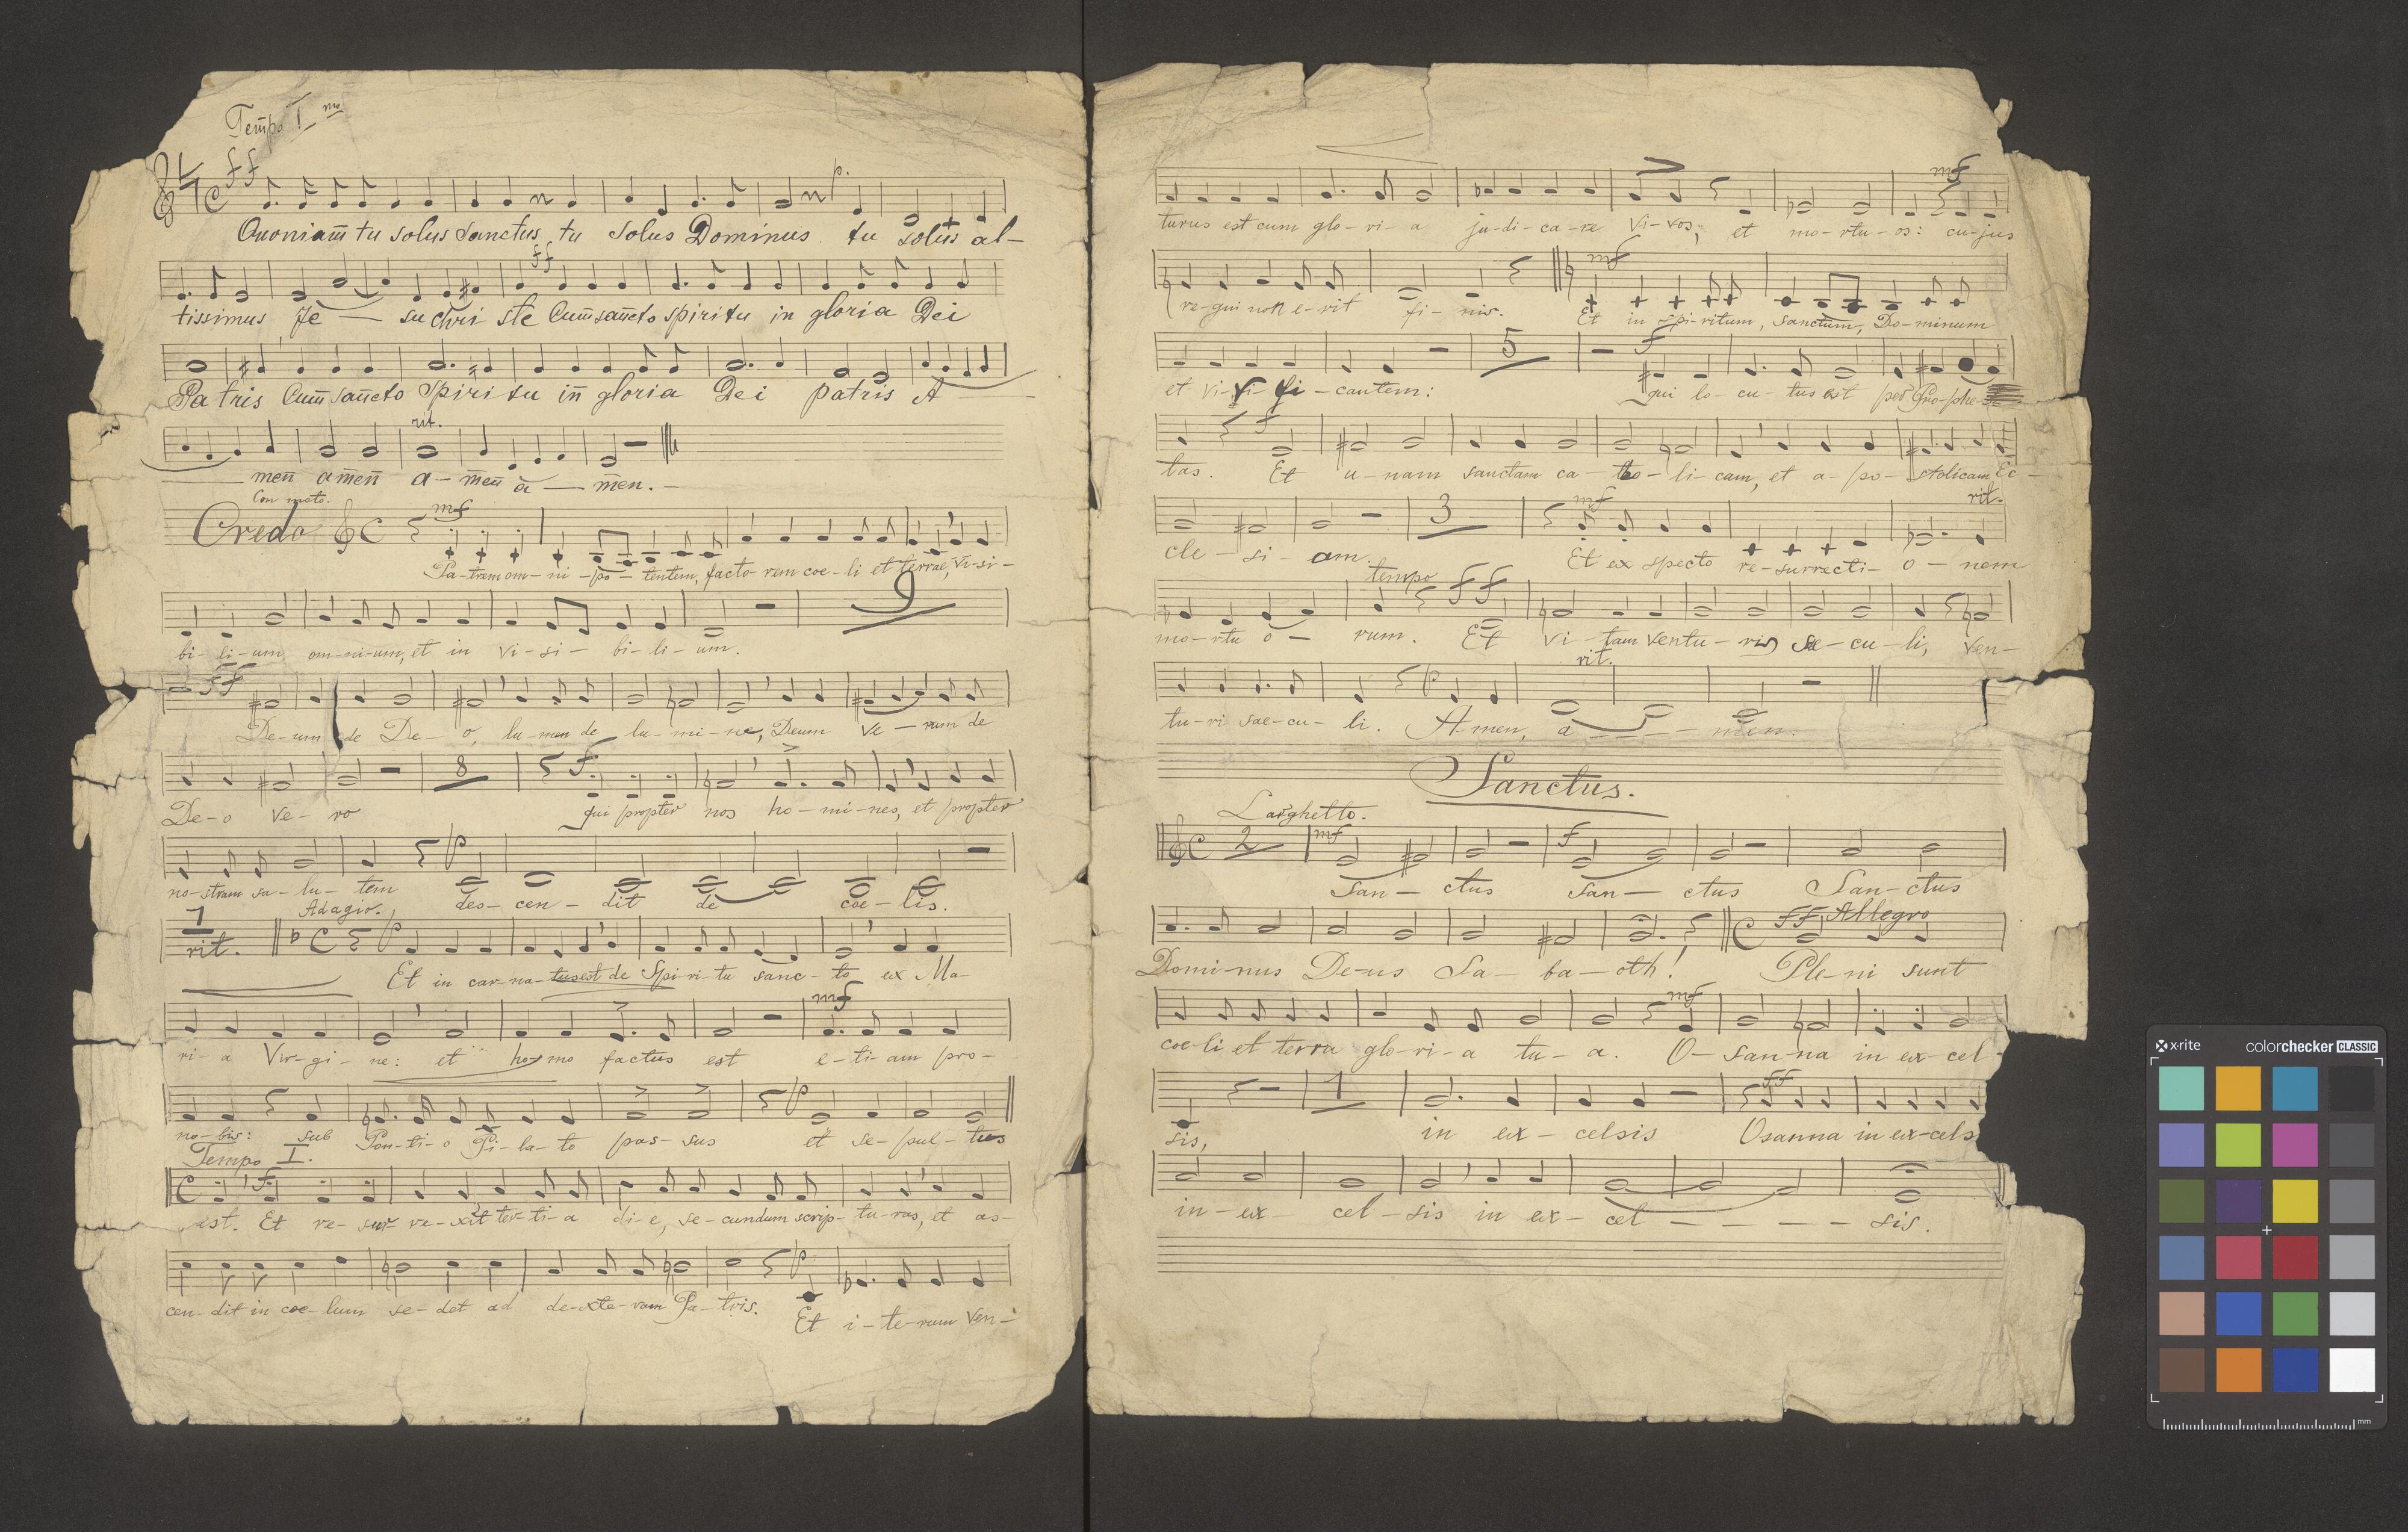 Tempo I mo
ff
p.
Quoniam̄ tu solus Sanctus, tu solus Dominus tu solus al-
ff
tissimus Je — su Chri ste Cum̄ san̄cto spiritu in gloria Dei
Patris Cum̄ san̄cto Spiritu in̄ gloria Dei patris A —
rit.
— men̄ amen̄ a - men̄ a — men. -
Con moto.
Credo C mf
Pa-trem om-ni-po-tentem, facto-rem coe-li et terrae, vi-si-
9
bi-li-um om-ni-um, et in vi-si-bi-li-um.
ff
De-um de De-o, lu-men de lu-mi-ne, Deum ve-rum de
8 f
De-o ve-ro qui propter nos ho-mi-nes, et propter
p
no-stram sa-lu-tem des-cen-dit de coe-lis.
1 Adagio.
rit. C p
Et in car-na-tus est de Spi-ri-tu sanc-to ex Ma-
mf
ri-a Vir-gi-ne: et ho-mo factus est e-ti-am pro-
p
no-bis: sub Pon-ti-o Pi-la-to pas-sus et se-pul-tus
Tempo I.
C f
est. Et re-sur-re-xit ter-ti-a di-e, se-cundum scrip-tu-ras, et as-
p
cen-dit in coe-lum se-det ad de-xte-ram Pa-tris. Et i-te-rum ven-i
mf
turus est cum glo-ri-a ju-di-ca-re vi-vos, et mo-rtu-os: cu-jus
mf
re-gni non e-rit fi-nis. Et in spi-ritum, sanctum, Do-minum
5 f
et vi-vi-fi-cantem: qui lo-cu-tus est per Pro-phe-
f
tas. Et u-nam sanctam ca-tho-li-cam, et a-po-stolicam Ec-
3 mf rit.
cle-si-am. Et ex specto re-surrecti-o-nem
tempo ff
mo-rtu o- rum. Et vi-tam ventu-ris se-cu-li, ven-
rit.
p
tu-ri sae-cu-li. A-men, a - - - - men.
Sanctus.
Larghetto.
C 2 mf f
San-ctus San-ctus San-ctus
C ff Allegro
Domi-nus De-us Sa-ba-oth! Ple-ni sunt
mf
coe-li et terra glo-ri-a tu-a. O-san-na in ex-cel-
1 ff
sis, in ex-celsis Osanna in ex-cels
in-ex-cel-sis in ex-cel - - - - - sis.
x-rite colorchecker CLASSIC
mm